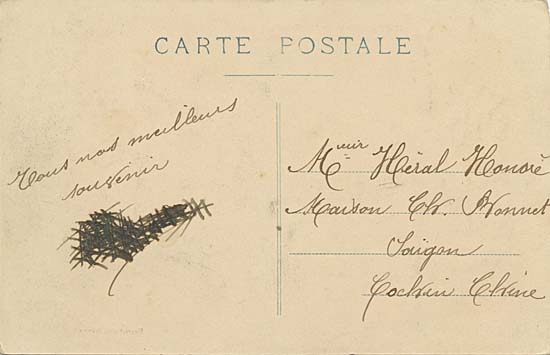 CARTE POSTALE
Tous nos meilleurs
souvenir
Mseur Héral Honoré
Maison Ch. Bonnet
Saïgon
Cochin Chine